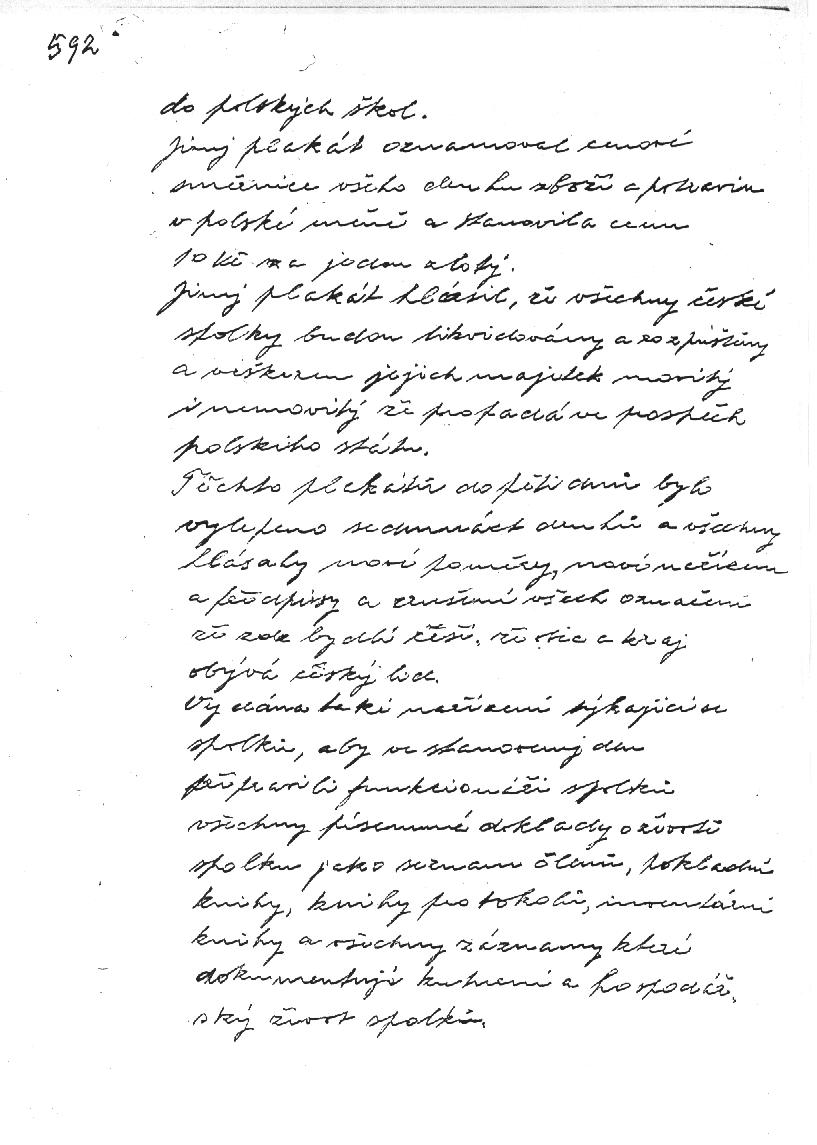 592
do polských škol.
Jiný plakát oznamoval cenové
směrnice všeho druhu zboží a potravin
v polské měně a stanovila cenu
10 Kč za jeden zlotý.
Jiný plakát hlásil, že všechny české
spolky budou likvidovány a rozpuštěny
a veškeren jejich majetek movitý
i nemovitý že propadá ve prospěch
polského státu.
Těchto plakátů do pěti dnů bylo
vylepeno sedmnáct druhů a všechny
hlásaly nové poměry, nové nařízení
a předpisy a zrušení všech označení
že zde bydlí češi, že a kraj
obývá český lid.
Vydána také nařízení týkající se
spolků, aby ve stanovený den
připravili funkcionáři spolků
všechny písemné doklady o životě
spolku jako seznam členů, pokladní
knihy, knihy protokolů, inventární
knihy a všechny záznamy které
dokumentují kulturní a hospodář-
ský život spolků.